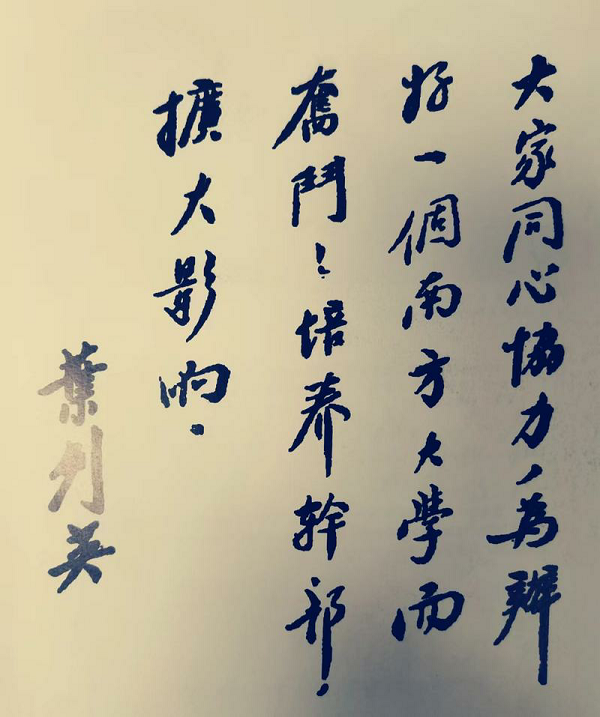 大家同心協力，為辦
好一個南方大學而
奮鬥！培养幹部！
擴大影响．
葉剑英